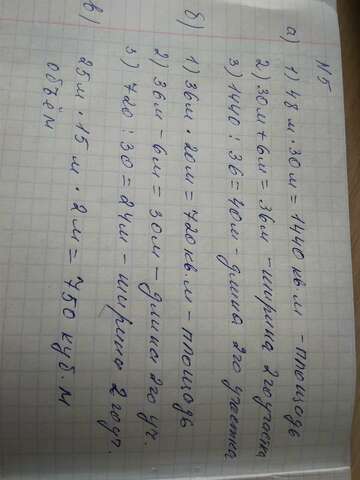 №5
а) 1) 48 м · 30 м = 1440 кв.м - площадь
2) 30 м + 6 м = 36 м - ширина 2го участка
3) 1440 : 36 = 40 м - длина 2го участка
б) 1) 36 м · 20 м = 720 кв.м - площадь
2) 36 м - 6 м = 30 м - длина 2го уч.
3) 720 : 30 = 24 м - ширина 2го уч.
в) 25 м · 15 м · 2 м = 750 куб. м
объём